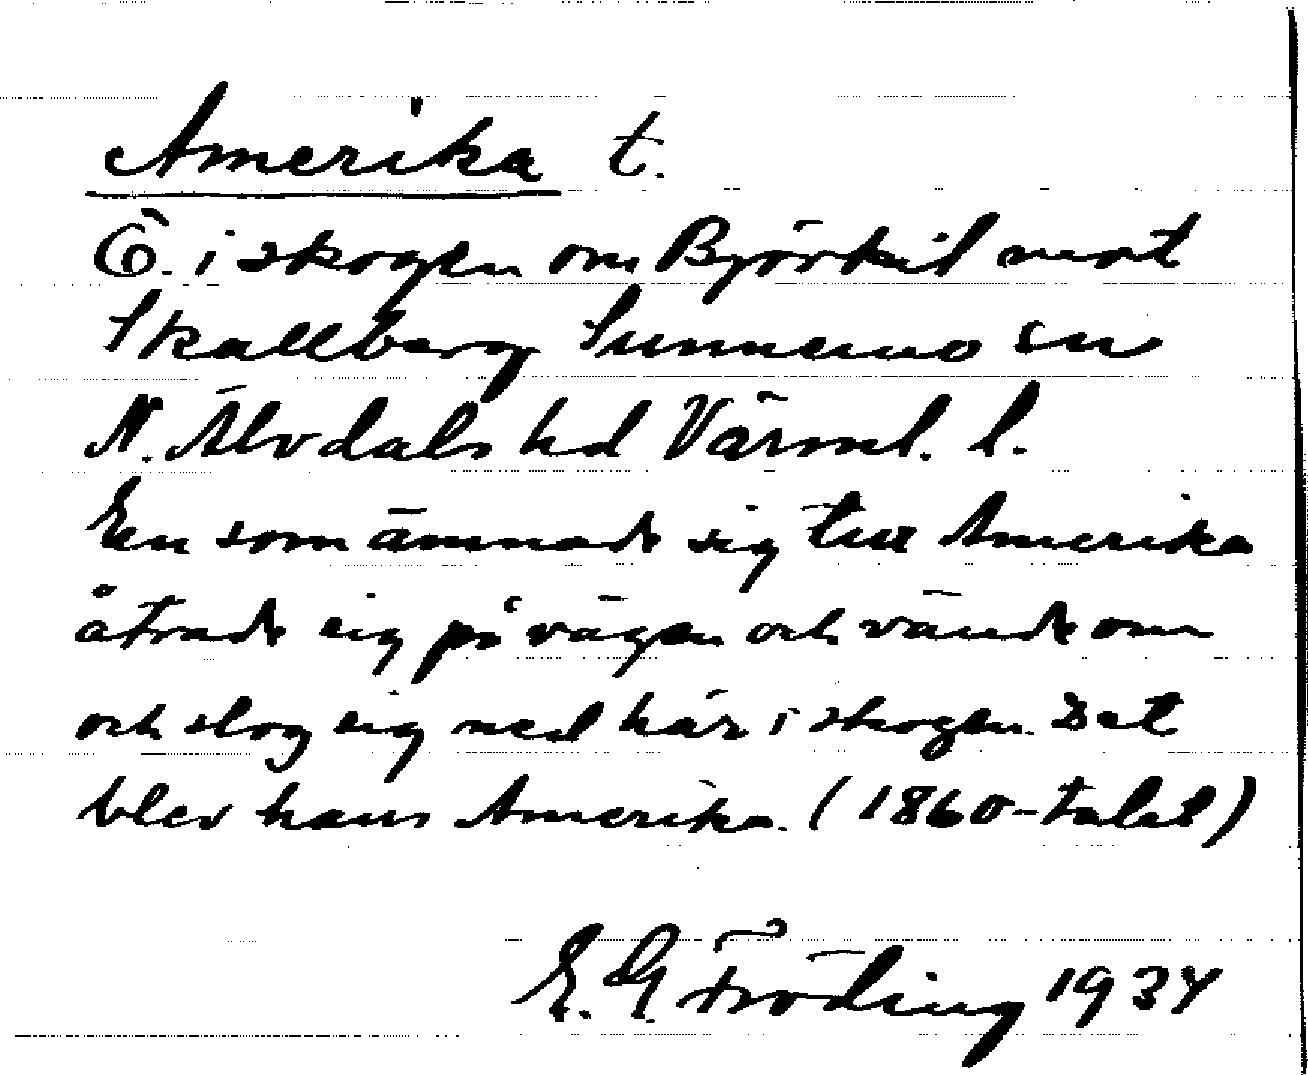 Amerika t.
Ö. i skogen om Björkil mot
Skallberg Sunnemo sn
N. Älvdals hd Värml. l.
En som ämnade sig till Amerika
åtrade sig på vägen och vände om
och slog sig ned här i skogen. Det
blev hans Amerika. (1860-talet)
E. G. Fröding 1934